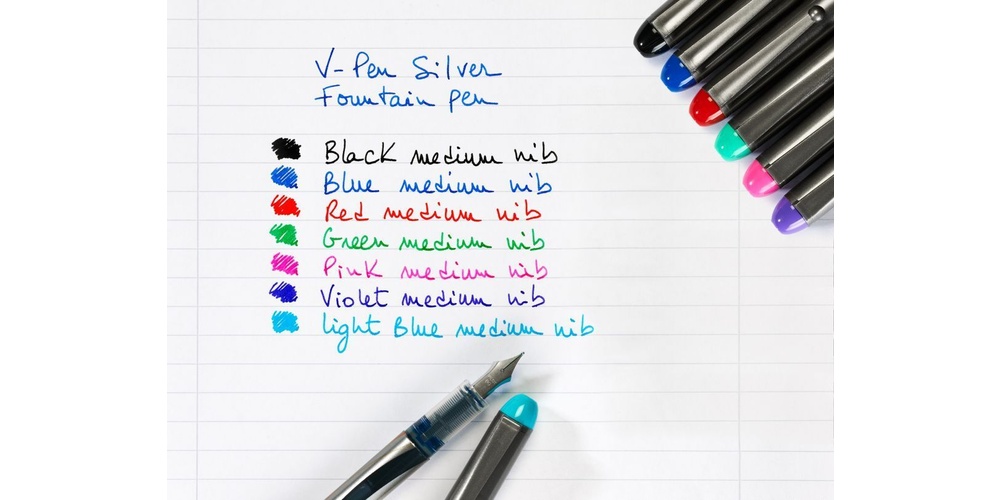 V-Pen Silver
Fountain pen
Black medium nib
Blue medium nib
Red medium nib
Green medium nib
Pink medium nib
Violet medium nib
light Blue medium nib